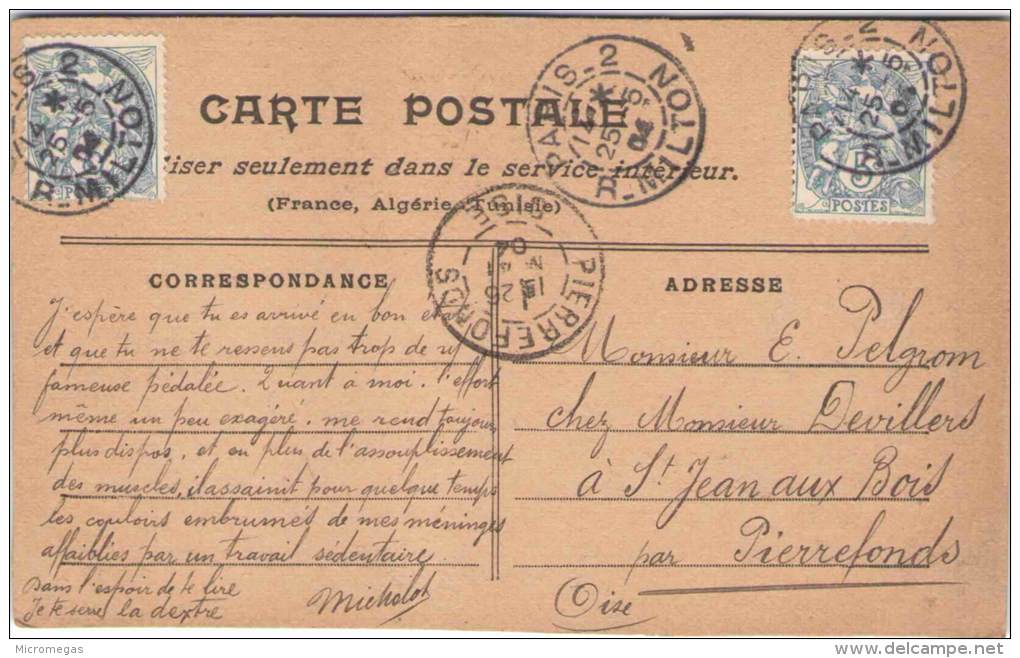 CARTE POSTALE
iser seulement dans le service intérieur.
(France, Algérie, Tunisie)
CORRESPONDANCE
J'espère que tu es arrivé en bon état
et que tu ne te ressens pas trop de
fameuse pédalée. Quant à moi. l'effort
même un peu exagéré, me rend toujours
plus dispos, et en plus de l'assouplissement
des muscles, il assainit pour quelque temps
les couloirs embrumés de mes méninges
affaiblies par un travail sédentaire.
Dans l'espoir de te lire
Je te serre la dextre
Michelot
ADRESSE
Monsieur E. Pelgrom
chez Monsieur Devillers
à St Jean aux Bois
par Pierrefonds
Oise
PARIS_2 R-MILTON
14
25-5
04
PIERREFONDS
OISE
26
04
5
POSTES
POSTES
PARIS_2 R-MILTON
25-5
04
R-MILTON
25-5
04
Micromegas
www.delcampe.net